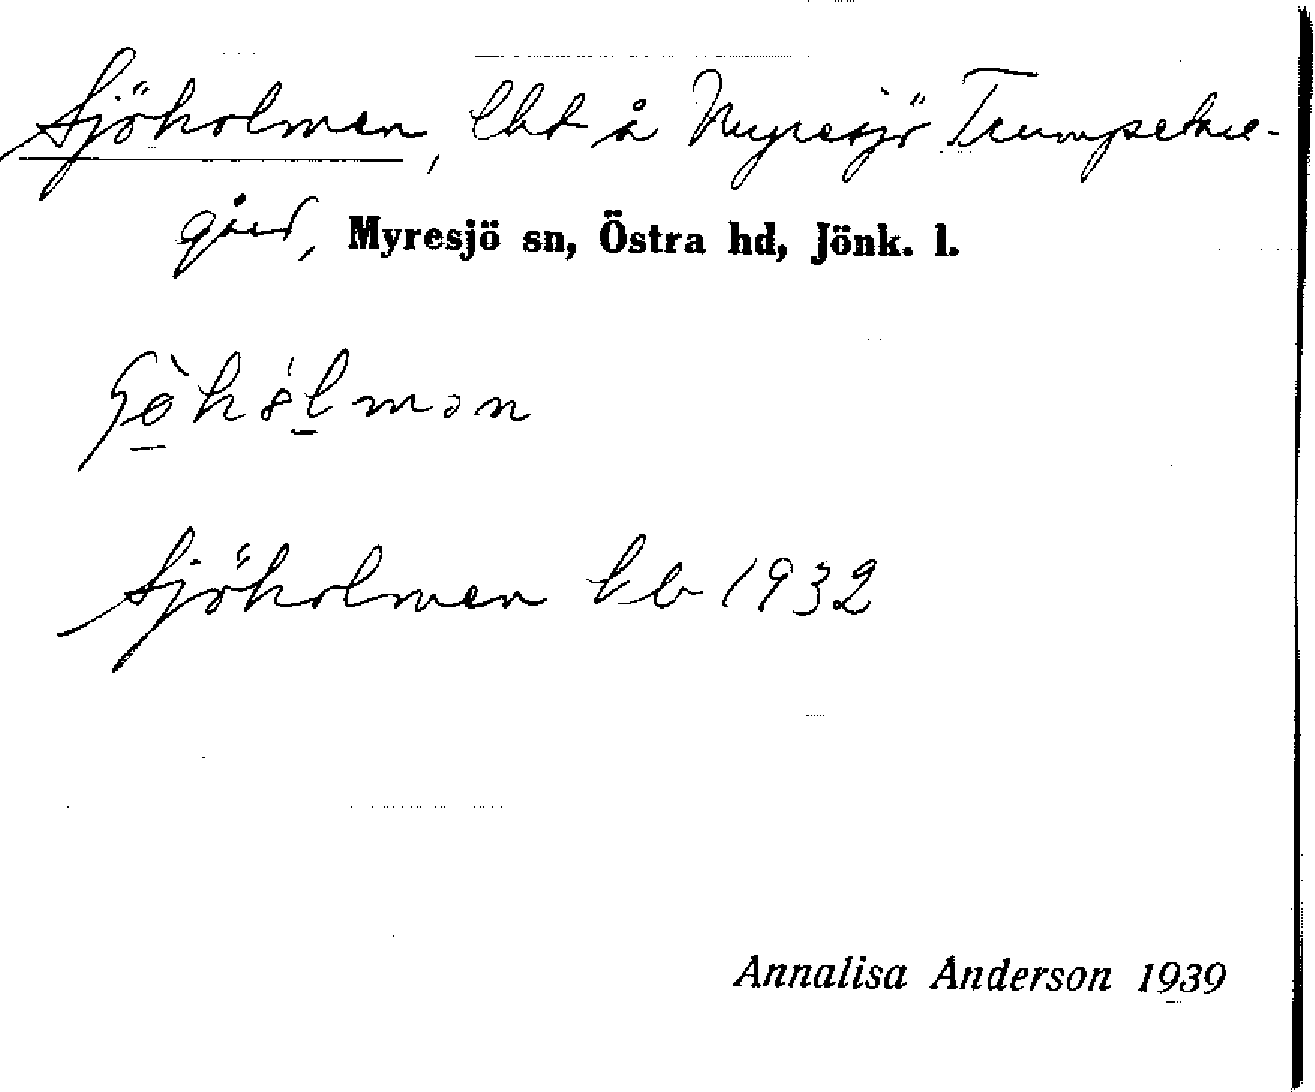 Sjöholmen, lht å Myresjö Trumpetare-
gård, Myresjö sn, Östra hd, Jönk. l.
Sjöholmen kb 1932
Annalisa Anderson 1939